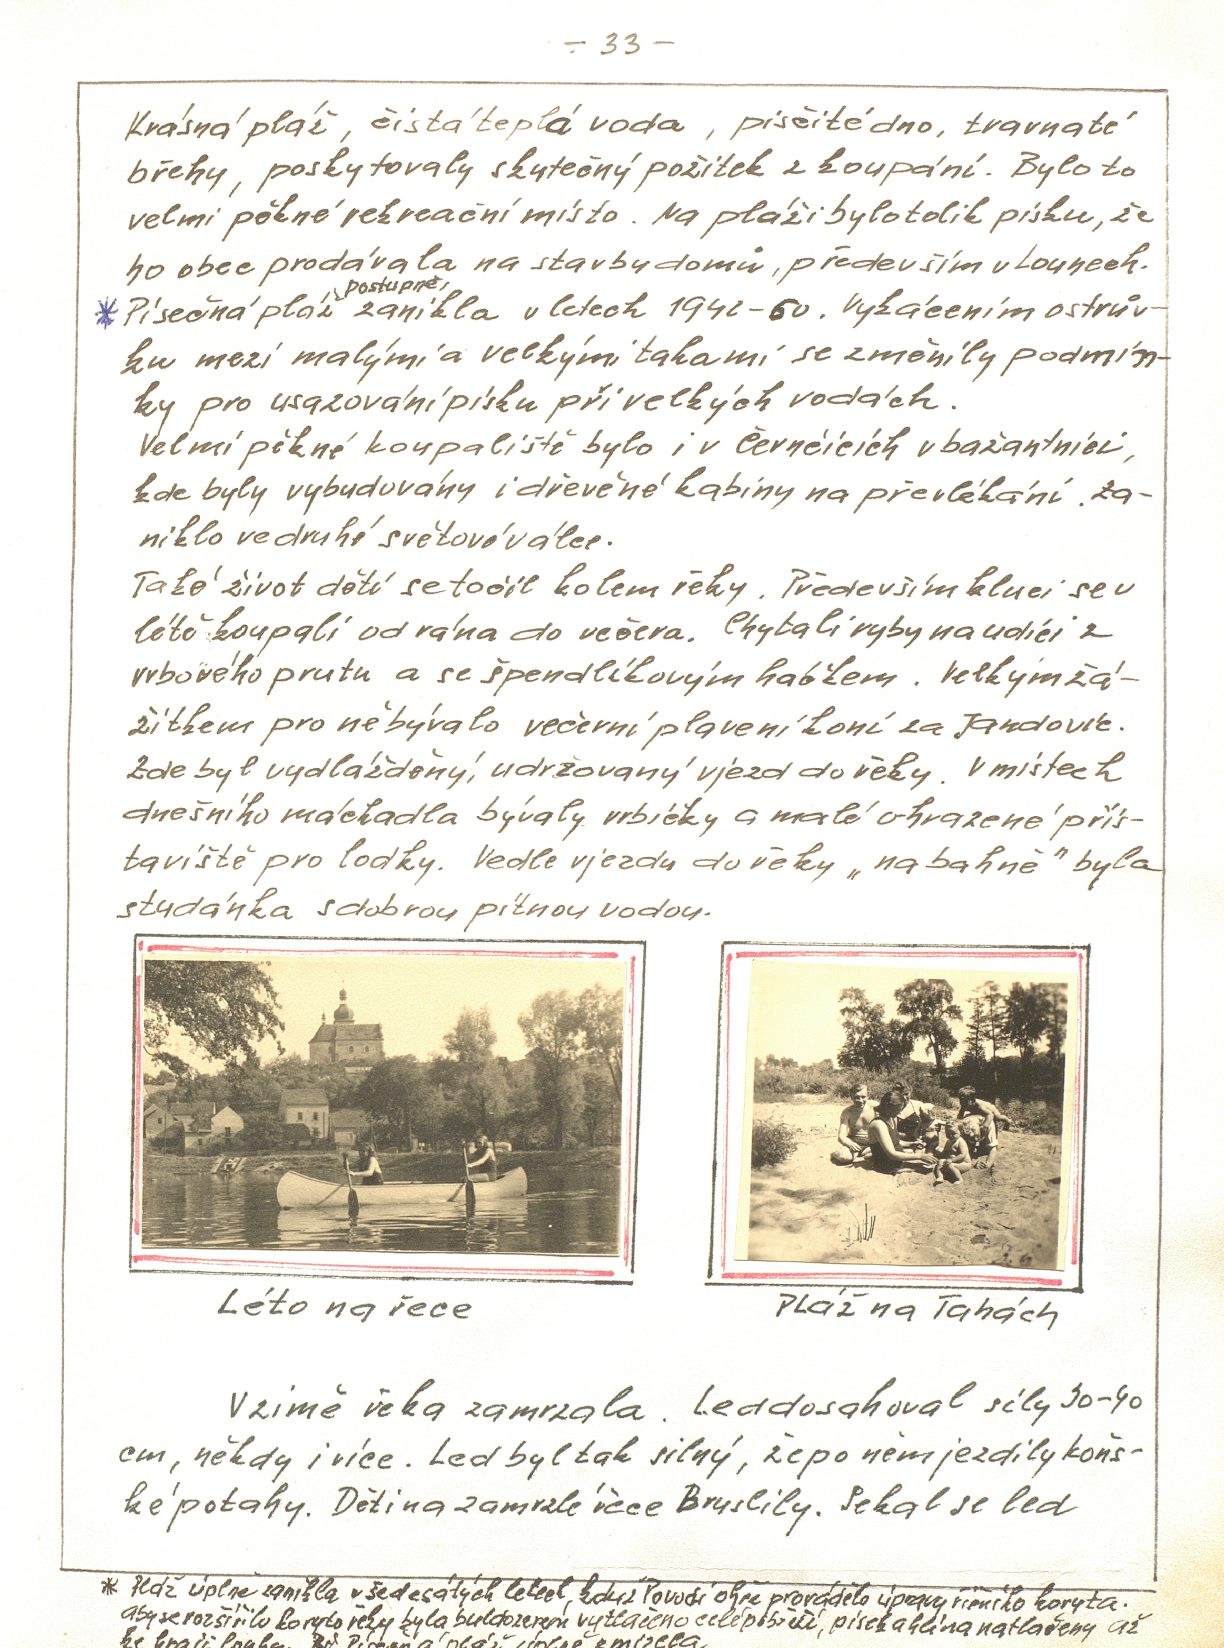 - 33 -
Krásná pláž, čistá teplá voda, písčité dno, travnaté
břehy, poskytovaly skutečný požitek z koupání. Bylo to
velmi pěkné rekreační místo. Na pláži bylo tolik písku, že
ho obec prodávala na stavby domů, především v Lounech.
postupně
* Písečná pláž zanikla v letech 1942-60. Vykácením ostrův-
ku mezi malými a velkými tahami se změnily podmín-
ky pro usazování písku při velkých vodách.
Velmi pěkné koupaliště bylo i v Černčicích v bažantnici,
kde byly vybudovány i dřevěné kabiny na převlékání. Za-
niklo ve druhé světové válce.
Také život dětí se točil kolem řeky. Především kluci se v
létě koupali od rána do večera. Chytali ryby na udici z
vrbového prutu a se špendlíkovým háčkem. Velkým zá-
žitkem pro ně bývalo večerní plavení koní za Jandovic.
Zde byl vydlážděný, udržovaný vjezd do řeky. V místech
dnešního máchadla bývaly vrbičky a malé ohrazené přís-
taviště pro lodky. Vedle vjezdu do řeky „na bahně" byla
studánka s dobrou pitnou vodou.
Léto na řece
Pláž na Tahách
V zimě řeka zamrzala. Led dosahoval síly 30-40
cm, někdy i více. Led byl tak silný, že po něm jezdily koňs-
ké potahy. Děti na zamrzlé řece Bruslily. Sekal se led
* Pláž úplně zanikla v šedesátých letech, když Povodí Ohře provádělo úpravy říčního koryta.
aby se rozšířilo koryto řeky byla buldozerem vytlačeno celé pobřeží, písek a hlína natlačeny až
ke kraji louky. Písečná pláž úplně zmizela.